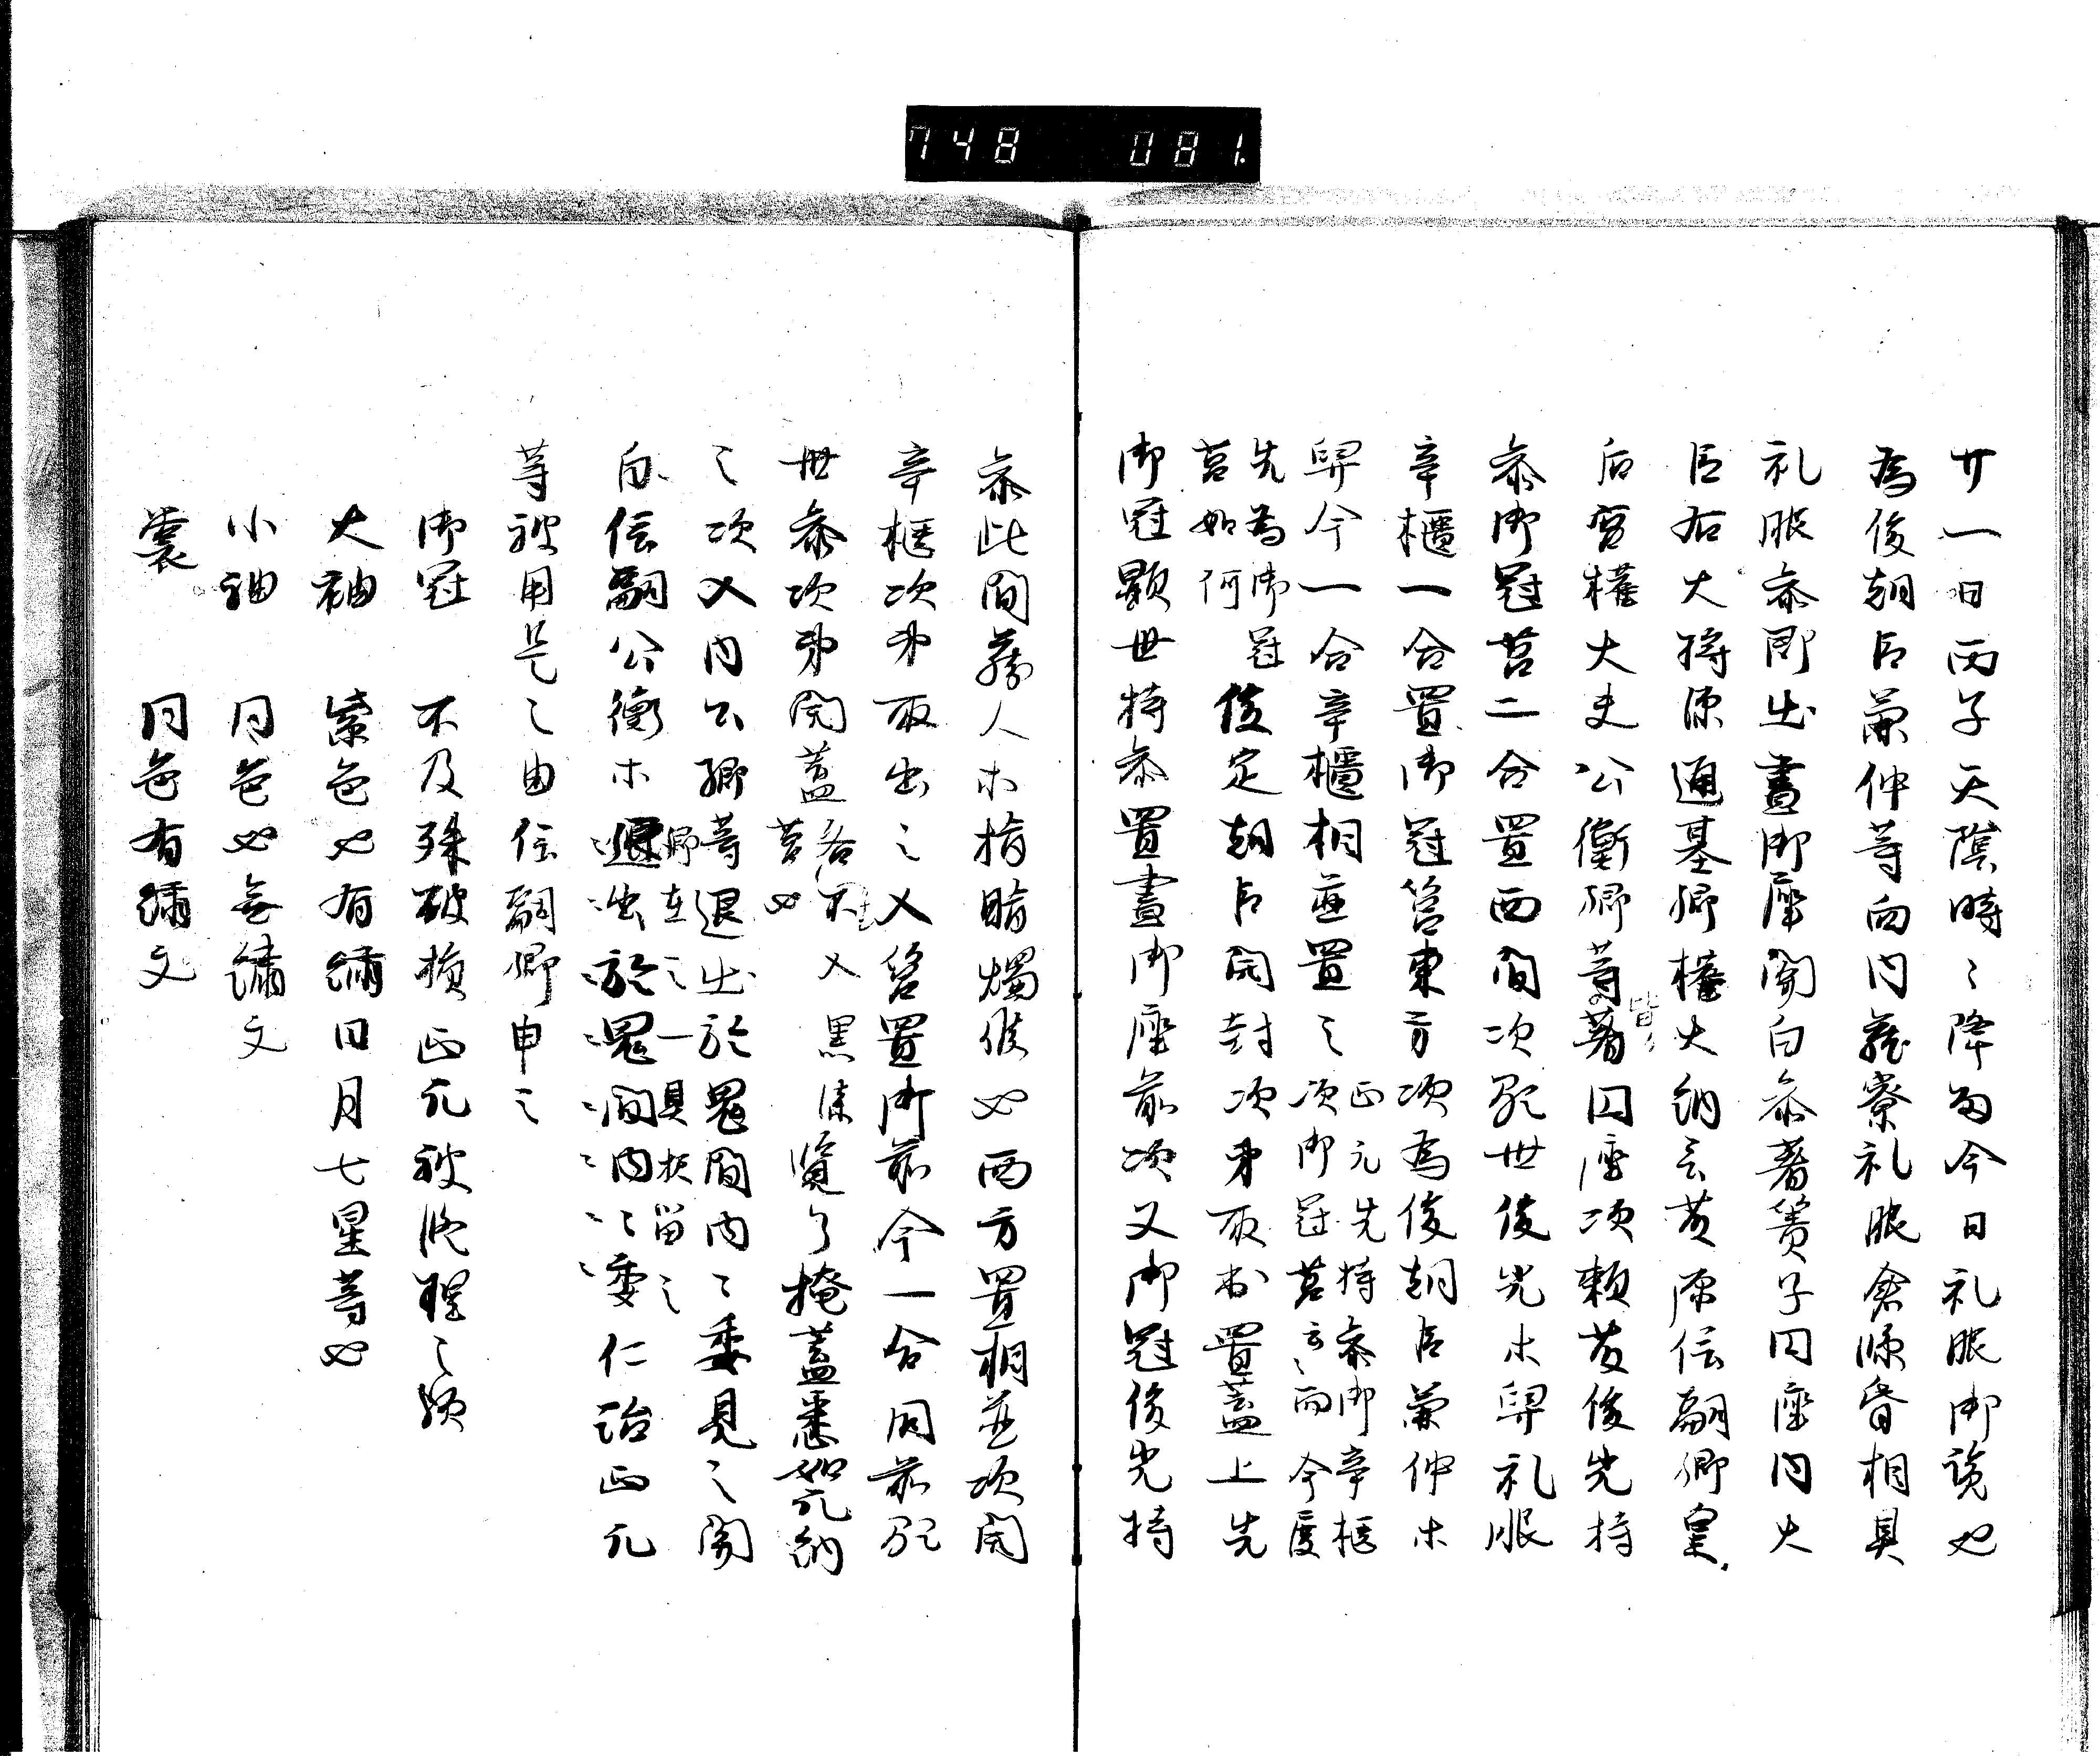 748 081.
廿一日丙子天陰時〻降雨今日礼服御覧也
為俊朝臣兼仲等向内蔵寮礼服倉源 相具
礼服参即出晝御座関白参著簀子円座内大
臣右大将源通基卿権大納言藤原信嗣卿皇
后宮権大夫公衡卿等著円座次頼藤俊光持
皆
参御冠筥二合置西間次顕世俊光木舁礼服
辛櫃一合置御冠筥東方次為俊朝臣兼仲木
舁今一合辛櫃相並置之次御冠筥云〻而今度
正元先持参御辛櫃
先為御冠
筥如何
俊定朝臣開封次第取出置蓋上先
御冠顕世持参置晝御座前次又御冠俊光持
参此間蔵人木指脂燭候也両方置相並次開
辛櫃次第取出之入筥置御前今一合同前顕
世参次第開蓋各不入黒漆
筥也
覧了掩蓋悉如元納
之次入内公卿等退出於鬼間内〻委見之関
白信嗣公衡木退出於鬼間内〻委仁治正元
卿在之一具被留之
等被用是之由信嗣卿申之
御冠 不及殊破損正元被修理之歟
大袖 紫色也有繍日月七星等也
小袖 同色也無繍文
裳 同色有繍文